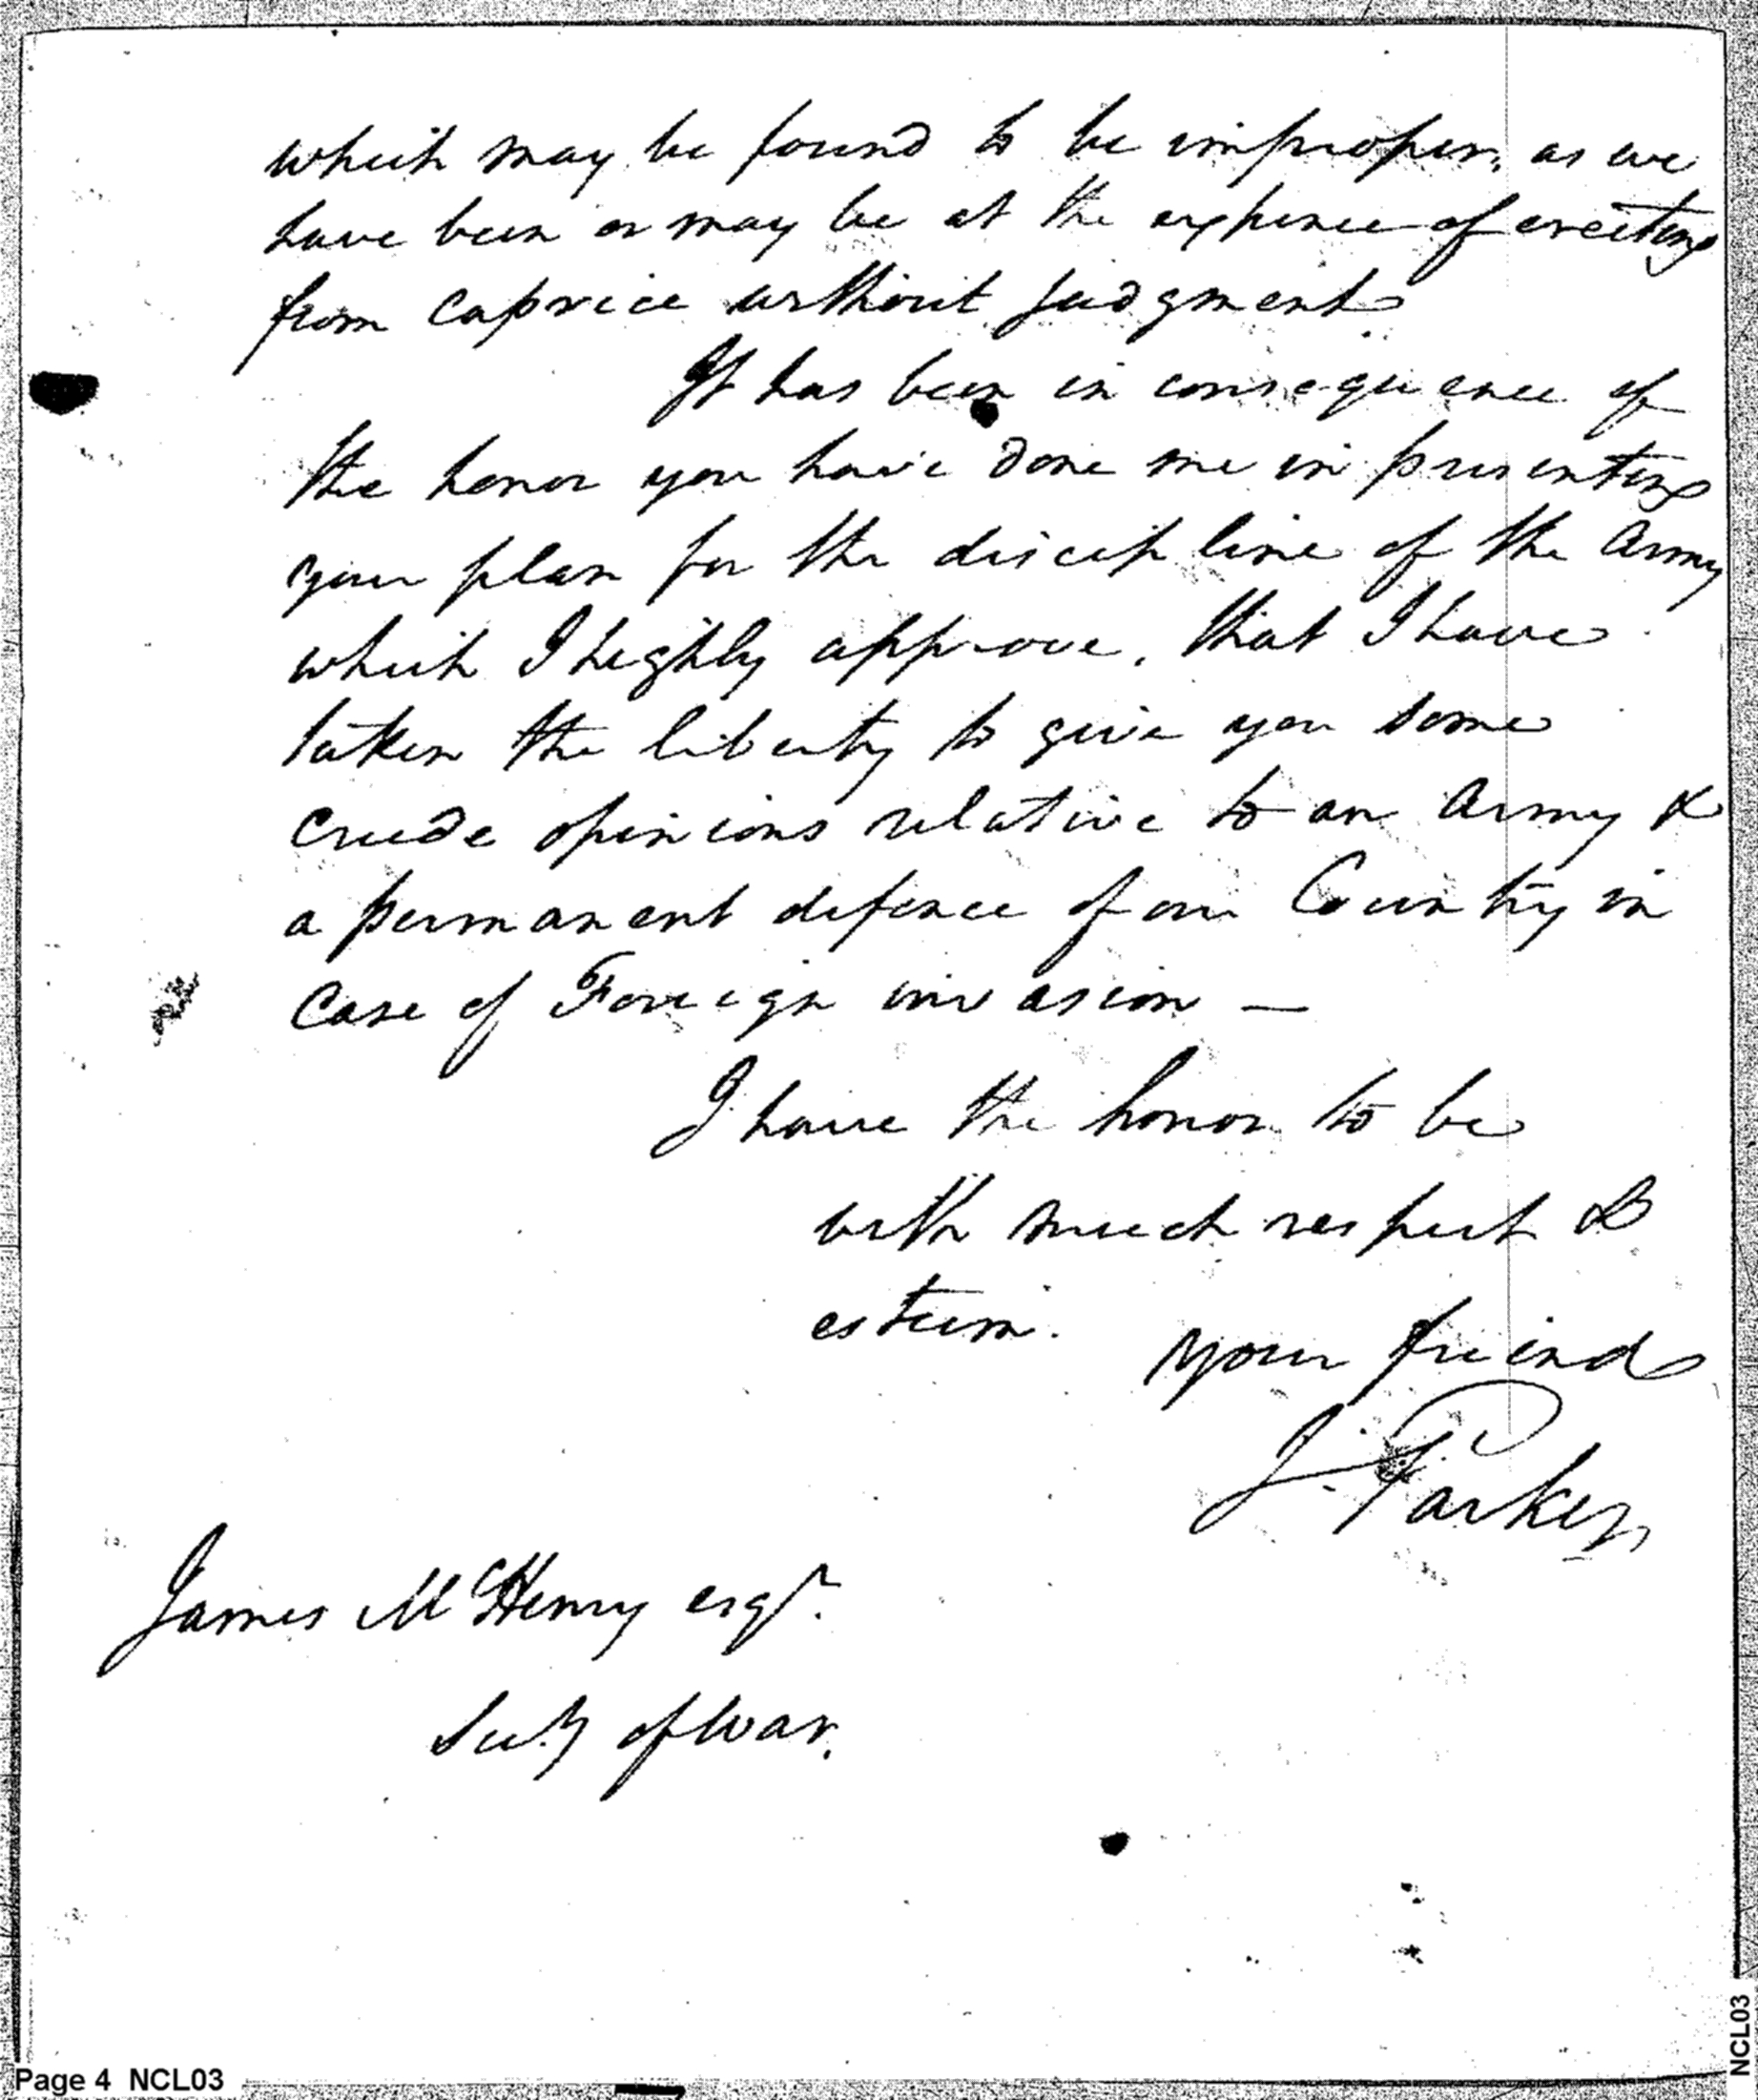 which may be found to be improper, as we
have been or may be at the expence of erecting
from Caprice without Judgment
It has been in consequence of
the honor you have done me in presenting
your plan for the discipline of the Army
which I highly approve, that I have
taken the liberty to give you some
Crude opinions relative to an Army &
a permanent defence of our Country in
Case of Foreign invasion —
I have the honor to be
with much respect &
esteem. your friend
J. Parker
James McHenry esqr.
Secty of War.
Page 4 NCL03
NCL03